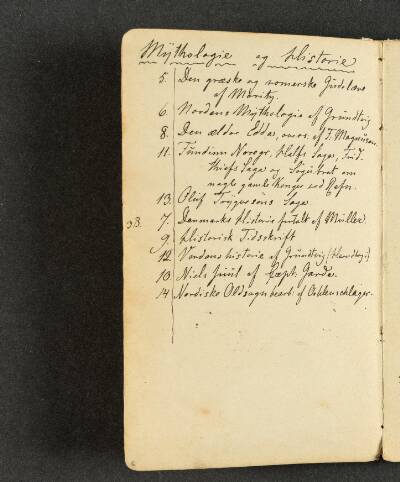 Mythologie og Historie
5. Den græske og romerske Gudelære
af Moritz.
6. Nordens Mythologie af Grundtvig
8. Den ældre Edda, overs. af F. Magnusen.
11. Fundinn Noregr, Halfs Saga, Frid-
thiofs Saga og Sögubrot om
nogle gamle Konger ved Rafn.
13. Oluf Tryggesöns Saga.
3B. 7. Danmarks Historie fortalt af Müller
9. Historisk Tidsskrift
12. Verdenshistorie af Grundtvig
10. Niels Juul af Capt. Garde.
14. Nordiske Oldsagn bearb. af Oehlenschläger.